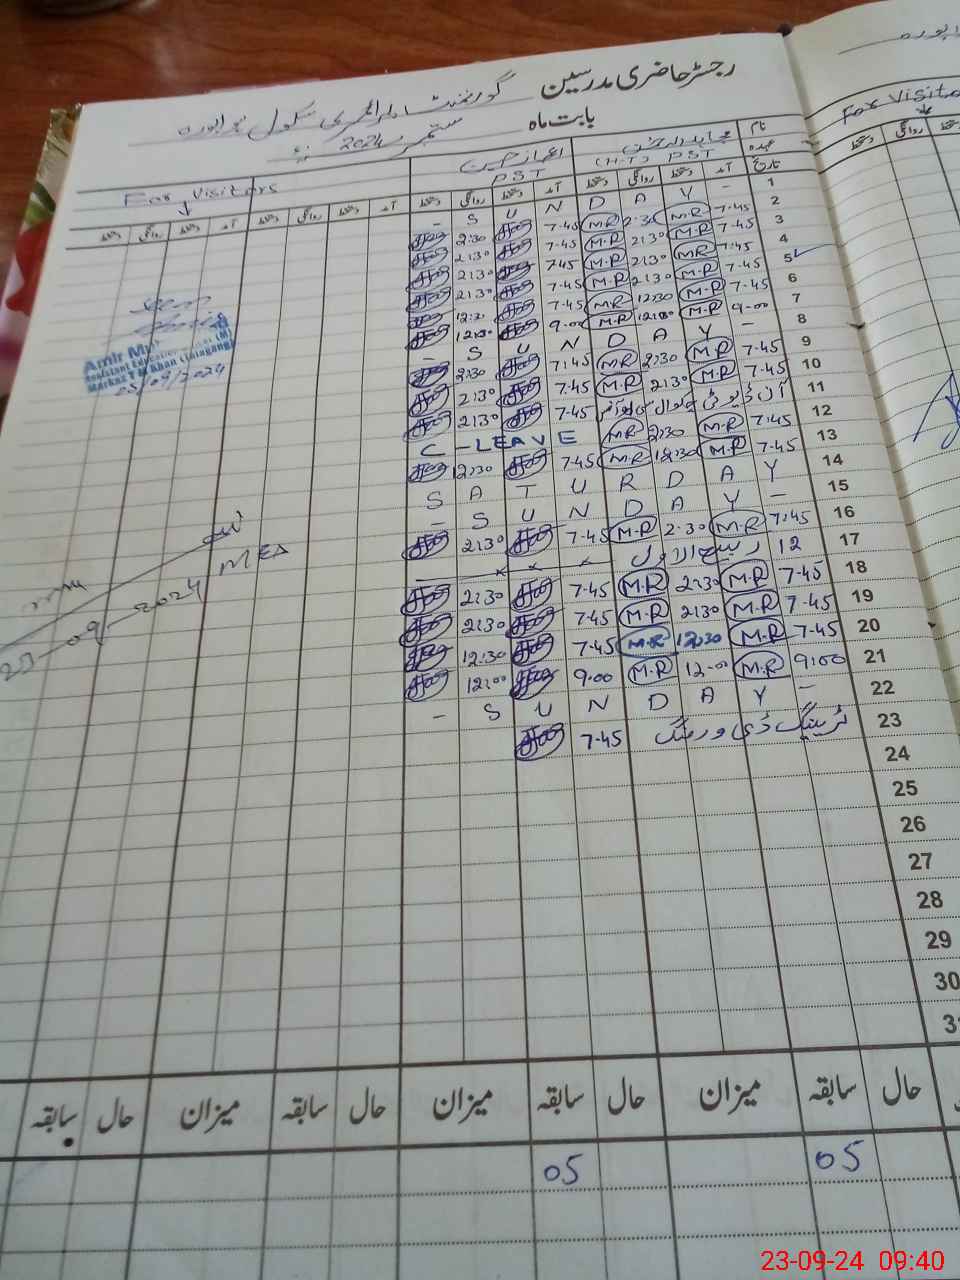 رجسٹر حاضری مدرسین گورنمنٹ ایلیمنٹری سکول
بابت ماہ ستمبر 2024
نام اعجاز حسین
عہدہ (H.T) PST PST For Visitors
تاریخ آمد دستخط روانگی دستخط آمد دستخط روانگی دستخط آمد دستخط روانگی دستخط آمد دستخط روانگی دستخط
1 - S U N D A Y -
2 7-45 M.R 2:30 M.R 7-45 2:30
3 7-45 M.R 2:30 M.R 7-45 2:30
4 7:45 M.R 2:30 M.R 7.45 2:30
5 7-45 M.R 2:30 M.R 7-45 2:30
6 7-45 M.R 12:30 M.R 7-45 12:30
7 9-00 M.R 12:00 M.R 9-00 12:00
8 - S U N D A Y -
9 7-45 M.R 2:30 M.R 7:45 2:30
10 7-45 M.R 2:30 M.R 7.45 2:30
11 7-45 2:30
12 7:45 M.R 2:30 M.R C-LEAVE
13 7-45 M.R 12:30 M.R 7.45 12:30
14 S A T U R D A Y
15 - S U N D A Y -
16 7:45 M.R 2:30 M.R 7-45 2:30
17 12 ربیع الاول x x x
18 7-45 M.R 2:30 M.R 7-45 2:30
19 7-45 M.R 2:30 M.R 7-45 2:30
20 7-45 M.R 12:30 M.R 7-45 12:30
21 9:00 M.R 12-00 M.R 9.00 12:00
22 - S U N D A Y -
23 ٹریننگ ڈی ورمنگ 7-45
24
25
26
27
28
29
30
31
Assistant Education
Markaz T M Khan (Talagang)
05/09/2024
23-09-2024
حال سابقہ میزان حال سابقہ میزان حال سابقہ میزان حال سابقہ
05 05
For Visitors
روانگی دستخط
23-09-24 09:40